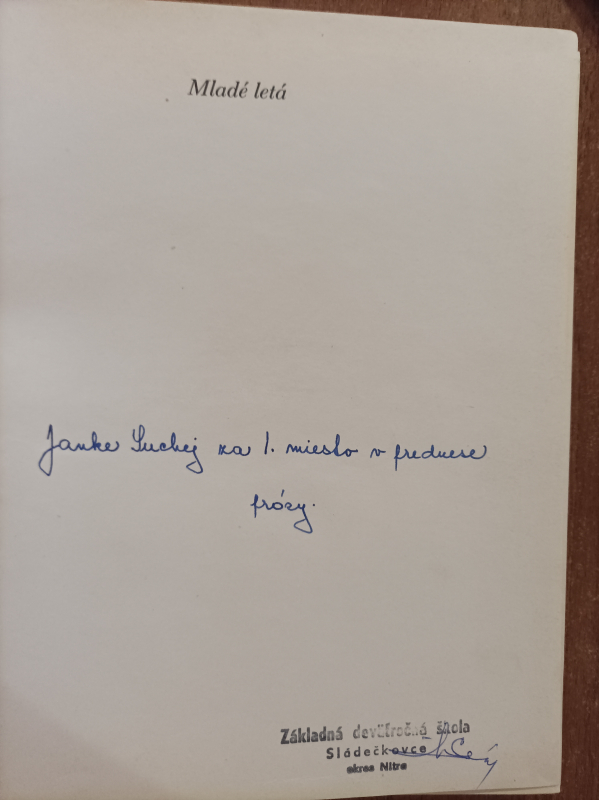 Mladé letá
Janke Suchej za 1. miesto v prednese
prózy.
Základná deväťročná škola
Sládečkovce
okres Nitra